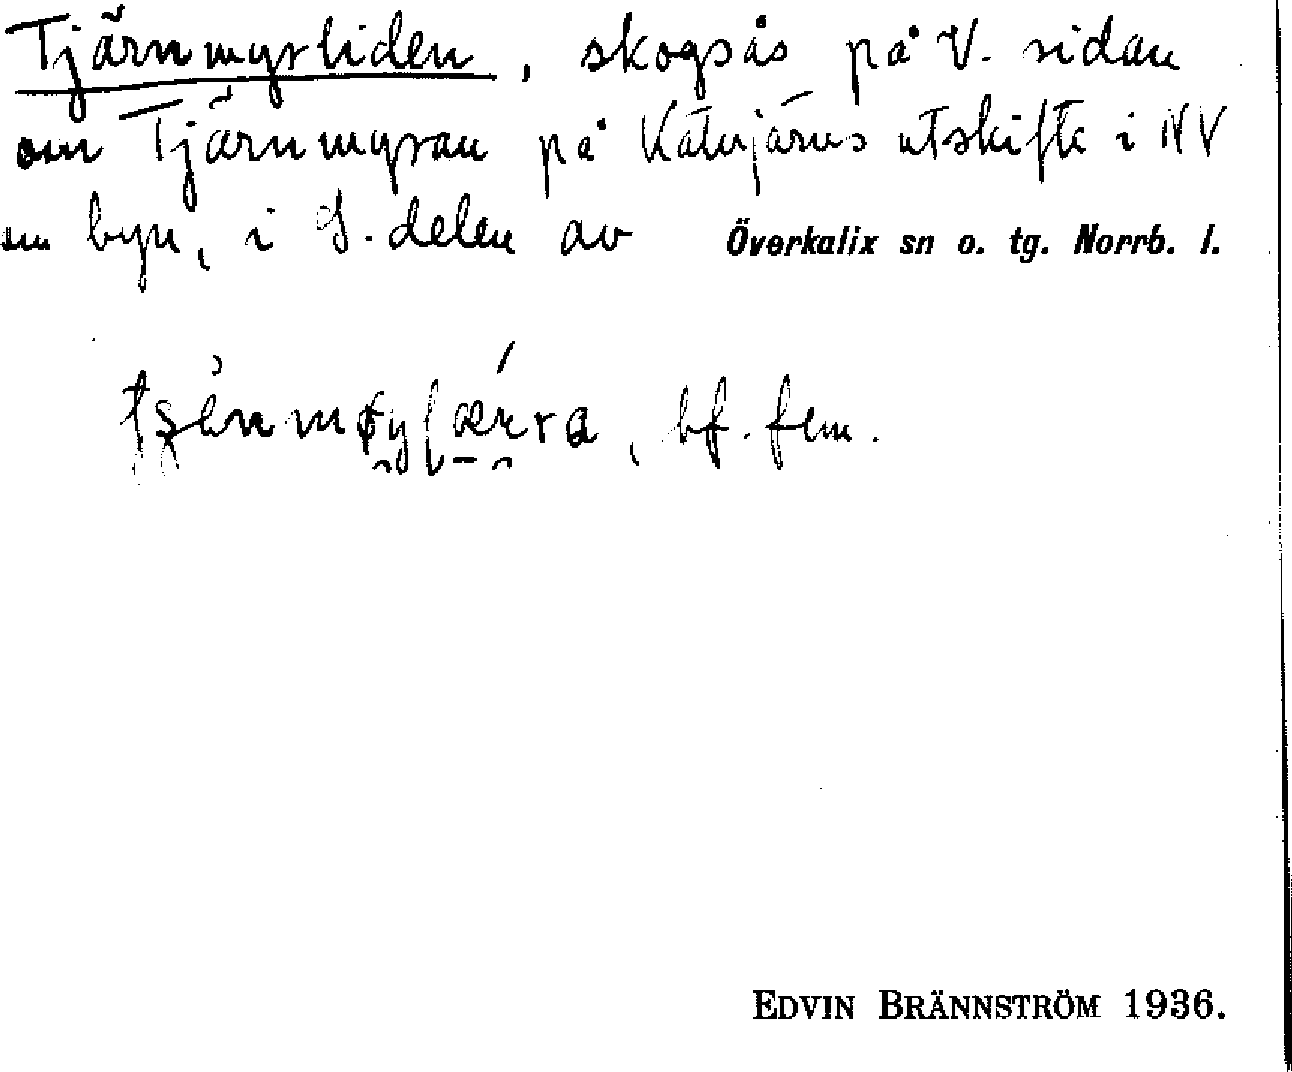 Tjärnmyrliden, skogsås på V. sidan
om Tjärnmyran på Kätujärvs utskifte i NV
om byn, i S. delen av Överkalix sn o. tg. Norrb. l.
bf. fem.
EDVIN BRÄNNSTRÖM 1936.